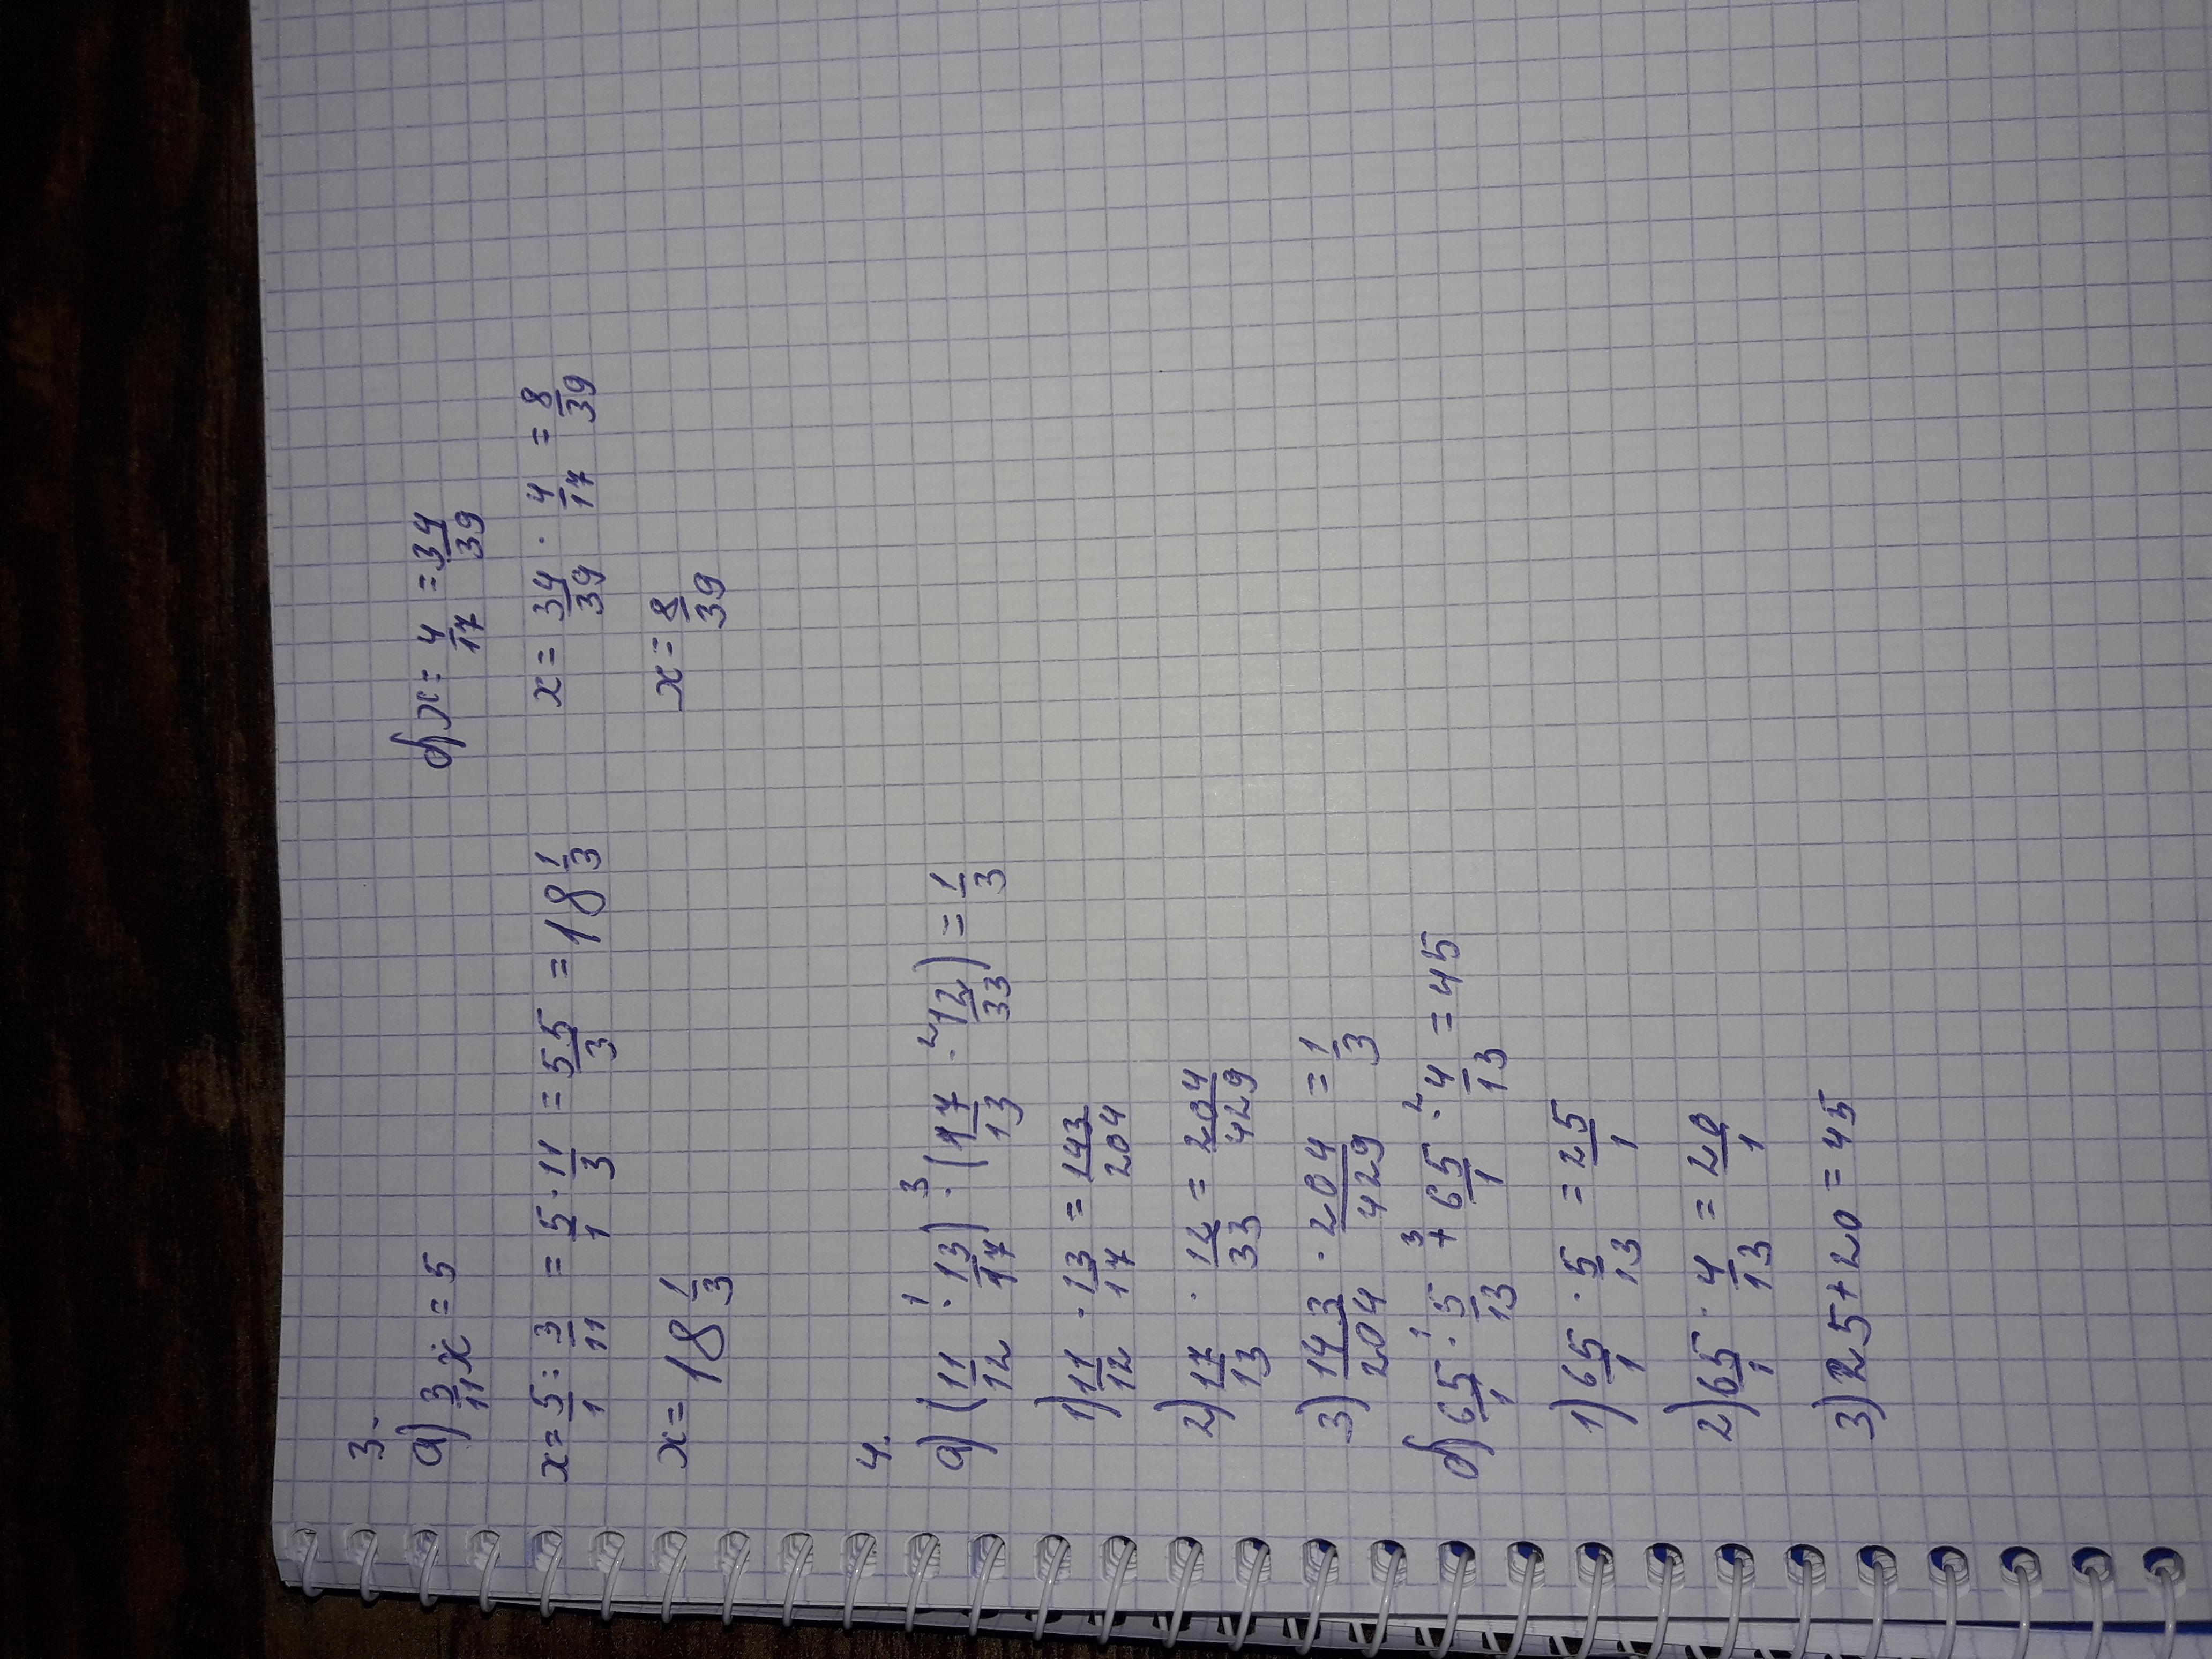 3.
а) 3/11 x = 5
б) x : 4/17 = 34/39
x = 5/1 : 3/11 = 5/1 · 11/3 = 55/3 = 18 1/3
x = 34/39 · 4/17 = 8/39
x = 18 1/3
x = 8/39
4.
а) (11/12 ·¹ 13/17) ·³ (17/13 ·² 12/33) = 1/3
1) 11/12 · 13/17 = 143/204
2) 17/13 · 12/33 = 204/429
3) 143/204 · 204/429 = 1/3
б) 65/1 ·¹ 5/13 +³ 65/1 ·² 4/13 = 45
1) 65/1 · 5/13 = 25/1
2) 65/1 · 4/13 = 20/1
3) 25 + 20 = 45